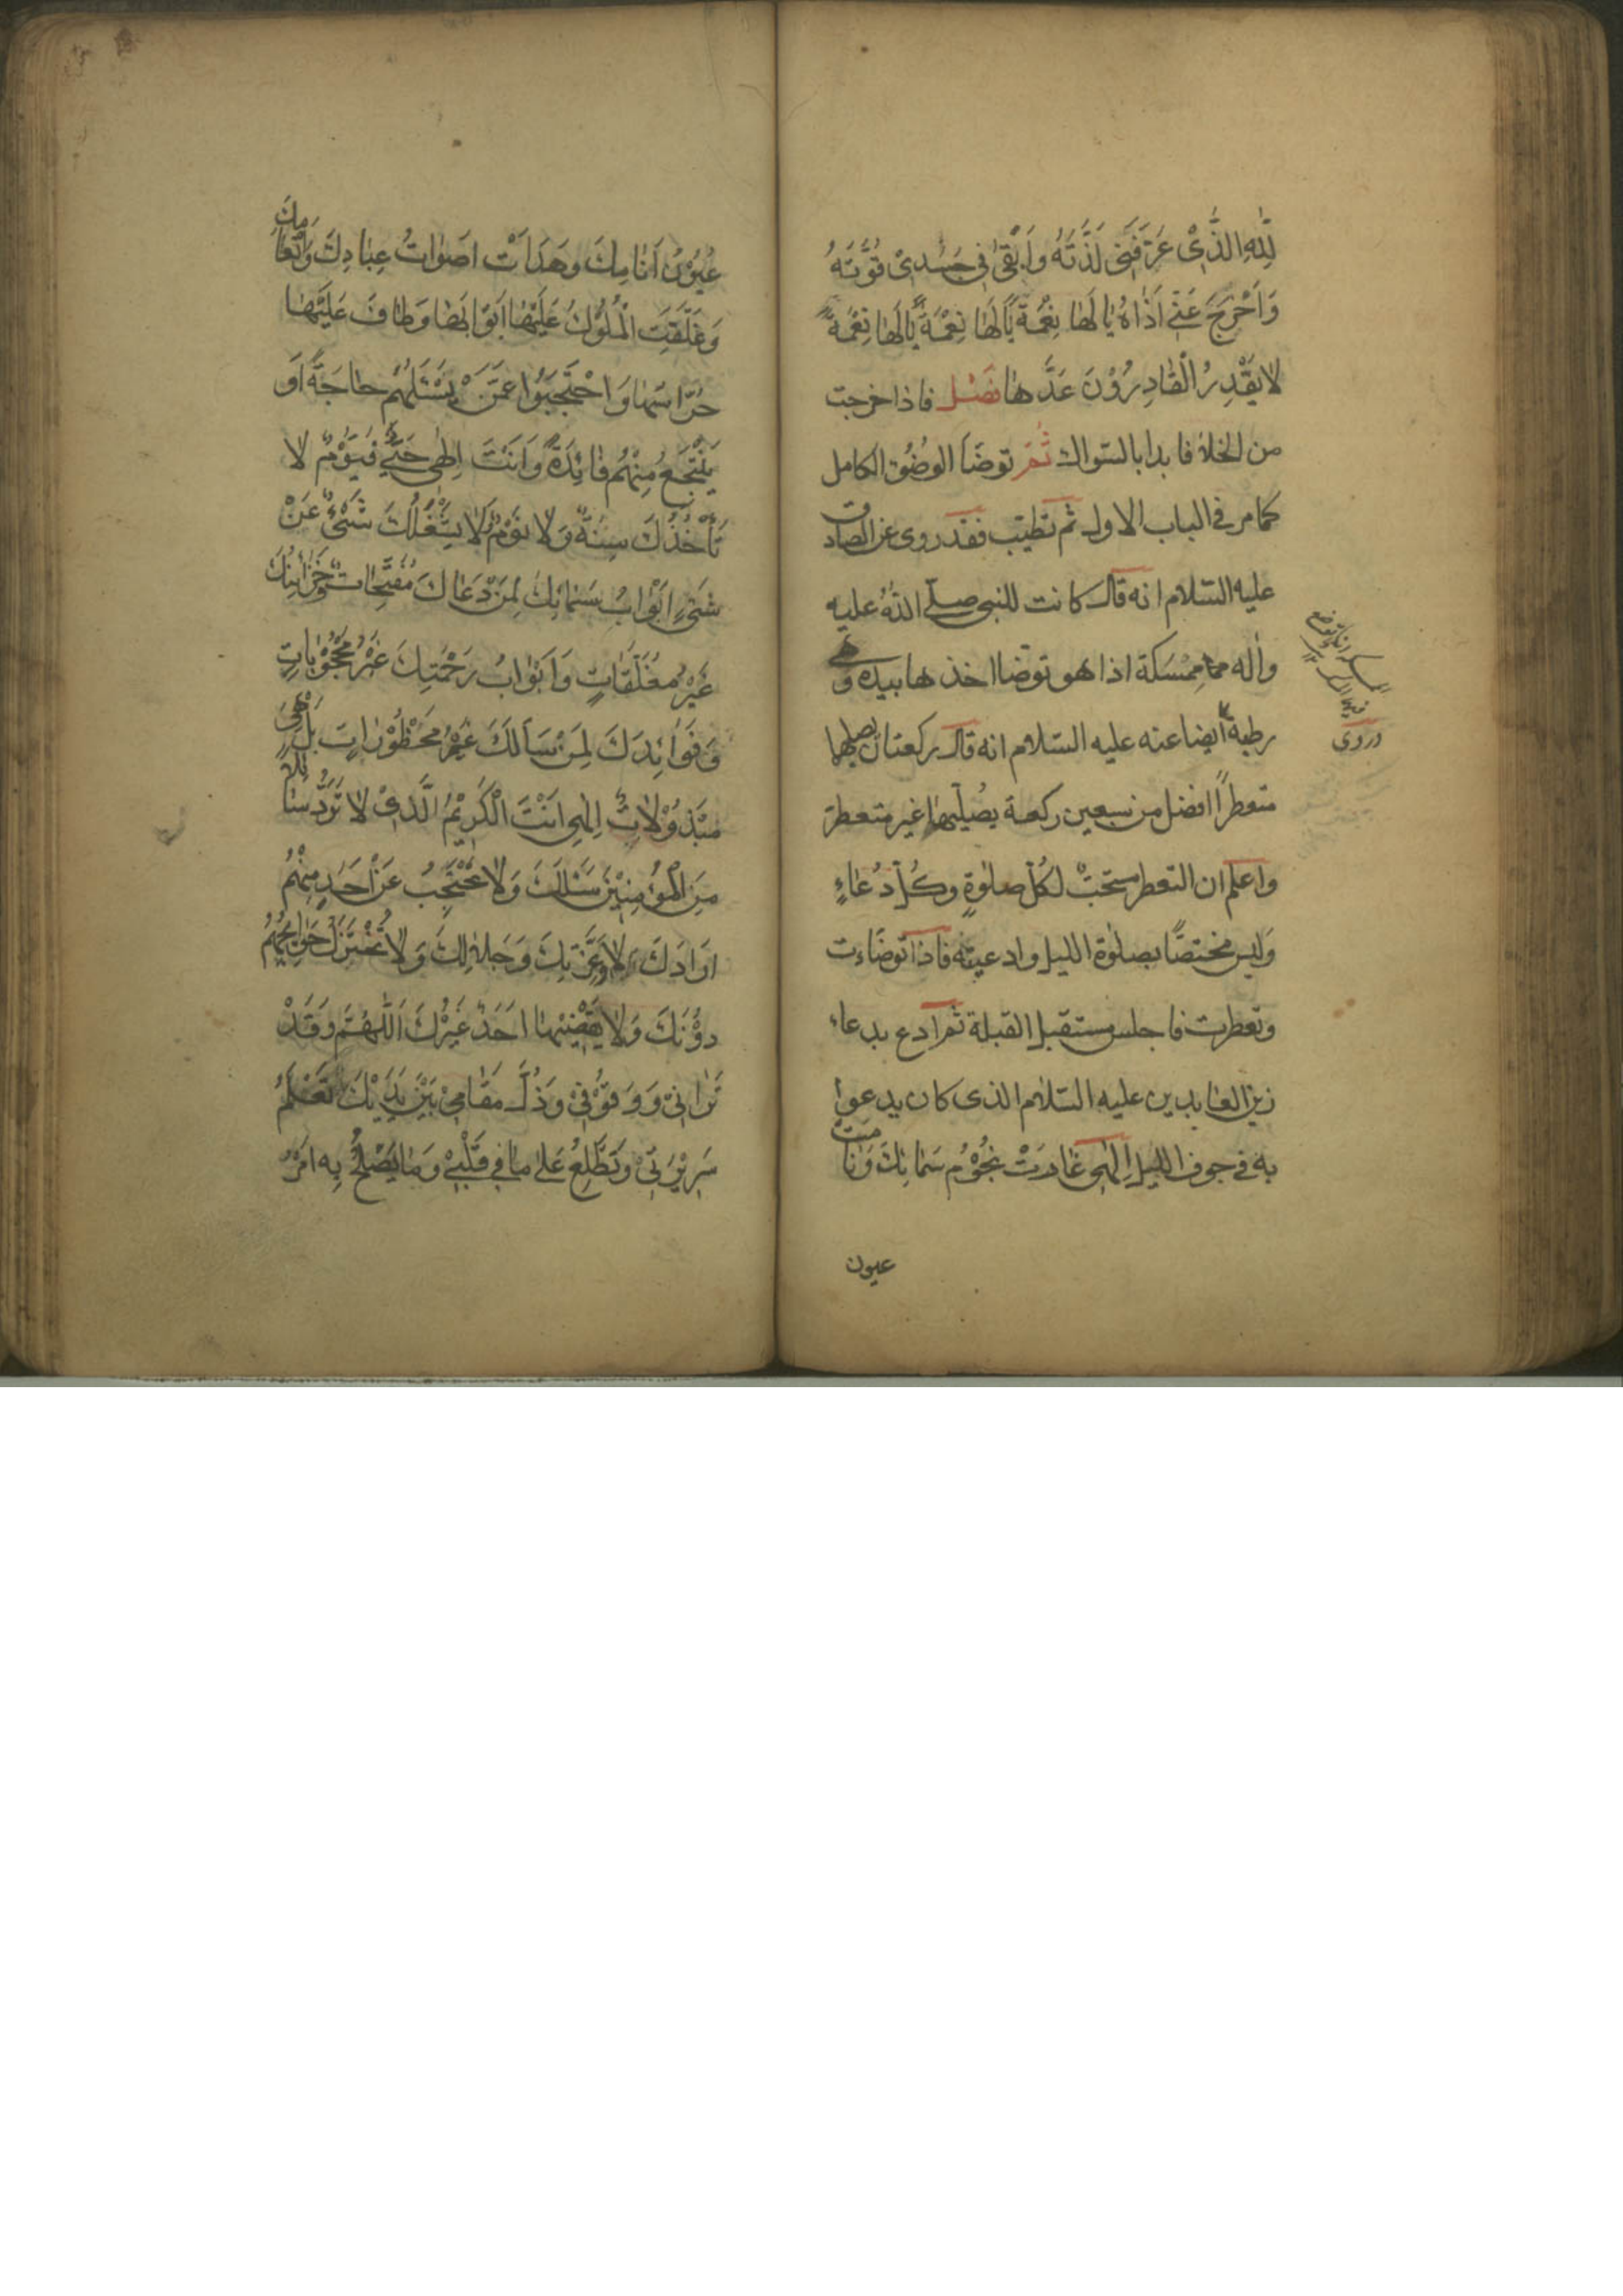 لِلّٰهِ الَّذِیْ عَرَّفَنِی لَذَّتَهُ وَاَبْقٰی فِی جَسَدِیْ قُوَّتَهُ
وَاَخْرَجَ عَنِّی اَذٰاهُ یٰا لَهٰا نِعْمَةً یٰا لَهٰا نِعْمَةً یٰا لَهٰا نِعْمَةً
لا یَقْدِرُ الْقٰادِرُوْنَ عَدَّهٰا فصل فاذا خرجت
من الخلاٰ فابدا بالسّواك ثُمَّ توضَأ الوضُوء الکامل
کما مر فی الباب الاول ثم تطیّب فقد روی عن الصادق
علیه السّلام انه قال کانت للنبی صلّی اللّٰهُ علیه
واٰله ممسکة اذا هو توضا اخذها بیده وهی
رطبة ایضا عنه علیه السّلام انه قال رکعتان یصلیها
متعطراً افضل من سبعین رکعة یُصلّیها غیر متعطر
واعلم ان التعطر مستحبّ لکلّ صلوٰةٍ وکلّ دُعٰاءٍ
وَلیس مختصًّا بصلوٰة اللیل وادعیته فاذا توضّاءت
وتعطرت فاجلس مستقبل القبلة ثم ادع بدعاء
زین العٰابدین علیه السّلام الذی کان یدعوا
به فی جوف اللیل اِلٰهی غٰارَتْ نُجُوْمُ سَمٰائِكَ وَنٰامَتْ
عیون
وروی
عُیُوْنُ اَنٰامِكَ وَهَدَاَتْ اَصْوٰاتُ عِبٰادِكَ وَاَنْعٰامِكَ
وَغَلَّقَتِ الْمُلُوْكُ عَلَیْهٰا اَبْوٰابَهٰا وَطٰافَ عَلَیْهٰا
حُرّٰاسُهٰا وَاحْتَجَبُوْا عَمَّنْ یَسْئَلُهُمْ حٰاجَةً اَوْ
یَنْتَجِعُ مِنْهُمْ فٰائِدَةً وَاَنْتَ اِلٰهِی حَیٌّ قَیُّوْمٌ لا
تَأْخُذُكَ سِنَةٌ وَلا نَوْمٌ وَلا یَشْغَلُكَ شَیْءٌ عَنْ
شَیْءٍ اَبْوٰابُ سَمٰائِكَ لِمَنْ دَعٰاكَ مُفَتَّحٰاتٌ وَخَزٰائِنُكَ
غَیْرُ مُغَلَّقٰاتٍ وَاَبْوٰابُ رَحْمَتِكَ غَیْرُ مَحْجُوْبٰاتٍ
وَفَوٰائِدُكَ لِمَنْ سَاَلَكَ غَیْرُ مَحْظُوْرٰاتٍ بَلْ هِیَ
مَبْذُوْلاٰتٌ اِلٰهِی اَنْتَ الْکَرِیْمُ الَّذِیْ لا تَرُدُّ سٰائِلاً
مِنَ الْمُؤْمِنِیْنَ سَئَلَكَ وَلا تَحْتَجِبُ عَنْ اَحَدٍ مِنْهُمْ
اَرٰادَكَ لا وَعِزَّتِكَ وَجَلٰالِكَ وَلا تُخْتَزَلُ حَوٰائِجُهُمْ
دُوْنَكَ وَلا یَقْضِیْهٰا اَحَدٌ غَیْرُكَ اَللّٰهُمَّ وَقَدْ
تَرٰانِیْ وَوُقُوْفِیْ وَذُلَّ مَقٰامِیْ بَیْنَ یَدَیْكَ تَعْلَمُ
سَرِیْرَتِیْ وَتَطَّلِعُ عَلٰی مٰا فِی قَلْبِیْ وَمٰا یَصْلُحُ بِهِ اَمْرُ